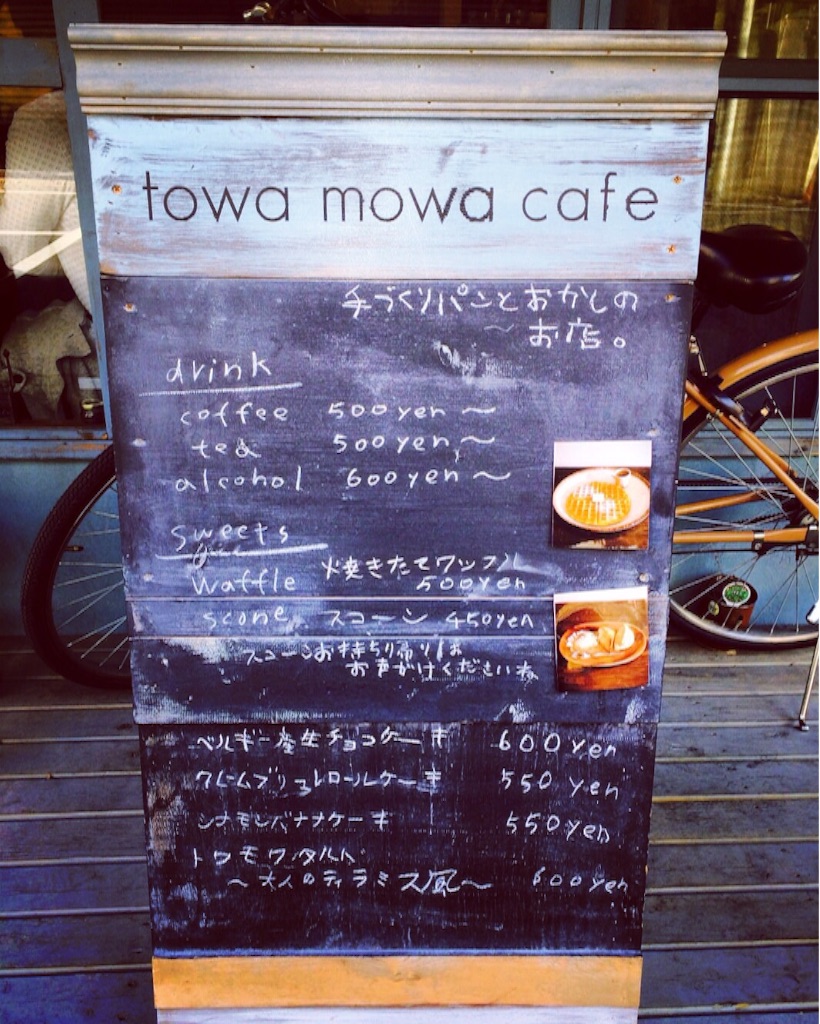 towa mowa cafe
手づくりパンとおかしの
〜お店。
drink
coffee 500yen〜
tea 500yen〜
alcohol 600yen〜
sweets
waffle 焼きたてワッフル 500yen
scone スコーン 450yen
スコーンお持ち帰りは
お声がけくださいね
ベルギー産生チョコケーキ 600yen
クレームブリュレロールケーキ 550yen
シナモンバナナケーキ 550yen
トワモワタルト
〜大人のティラミス風〜 600yen